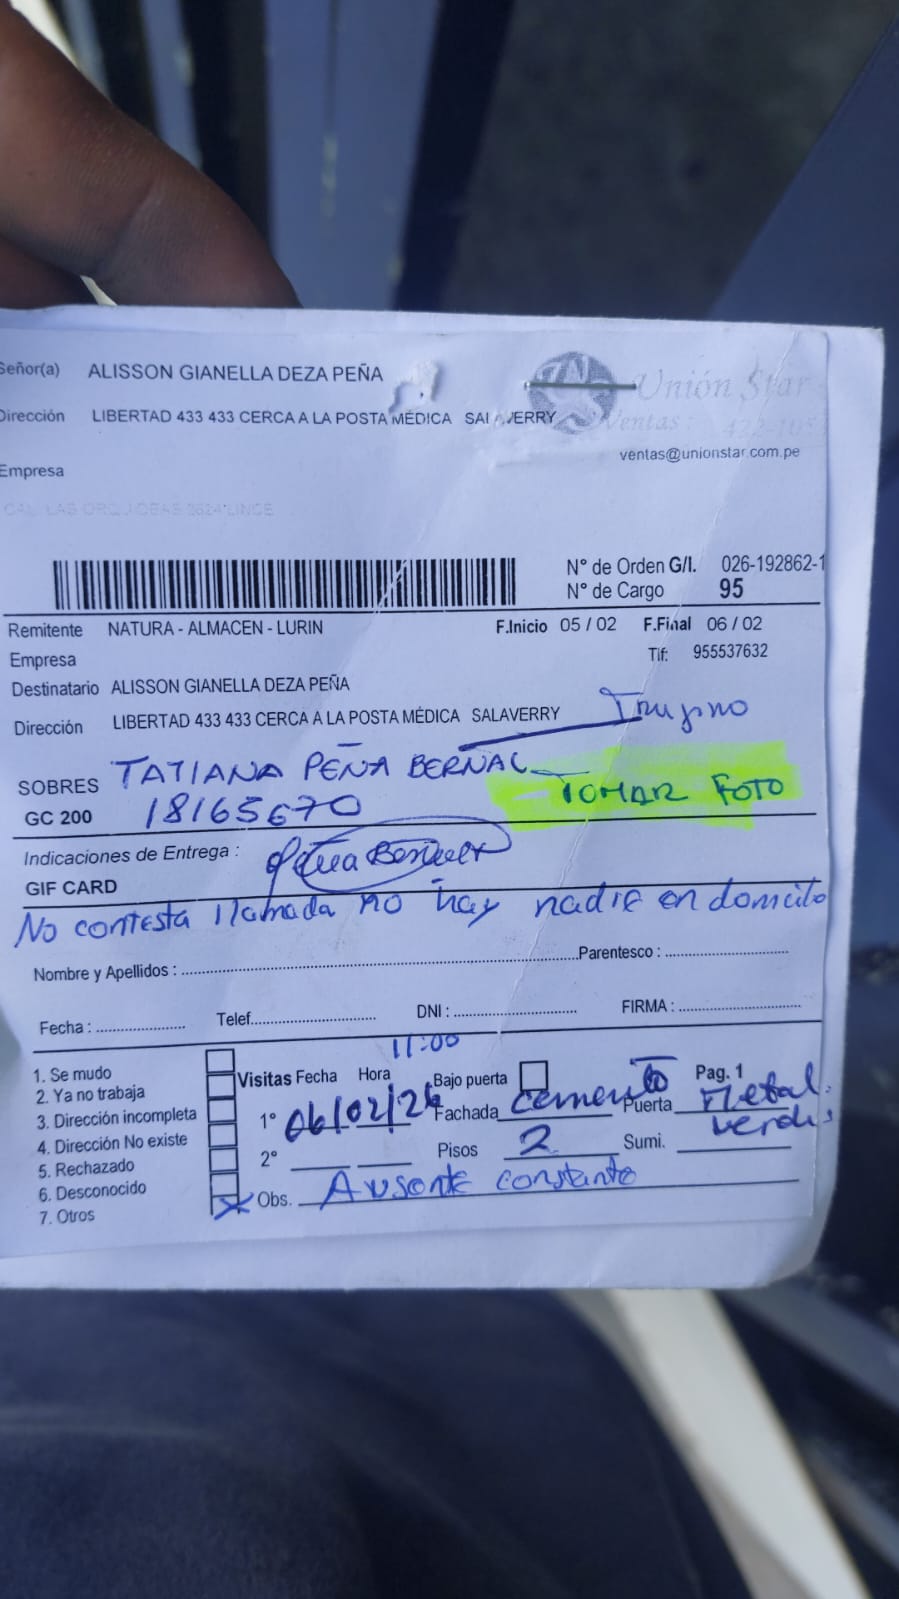 Señor(a) ALISSON GIANELLA DEZA PEÑA
Unión Star
Dirección LIBERTAD 433 433 CERCA A LA POSTA MÉDICA SALAVERRY
Ventas:
ventas@unionstar.com.pe
Empresa
N° de Orden G/I. 026-192862-1
N° de Cargo 95
Remitente NATURA - ALMACEN - LURIN F.Inicio 05 / 02 F.Final 06 / 02
Empresa Tlf: 955537632
Destinatario ALISSON GIANELLA DEZA PEÑA
Dirección LIBERTAD 433 433 CERCA A LA POSTA MÉDICA SALAVERRY
SOBRES TATIANA PEÑA BERNAL TOMAR FOTO
GC 200 18165670
Indicaciones de Entrega :
GIF CARD
No contesta llamada no hay nadie en domicilo
Nombre y Apellidos : Parentesco :
Fecha : Telef. DNI : FIRMA :
11:00
1. Se mudo
2. Ya no trabaja
3. Dirección incompleta
4. Dirección No existe
5. Rechazado
6. Desconocido
7. Otros
Visitas Fecha Hora Bajo puerta Pag. 1
1° 06/02/26 Fachada cemento Puerta Metal
verde
2° Pisos 2 Sumi.
X Obs. Ausente constante